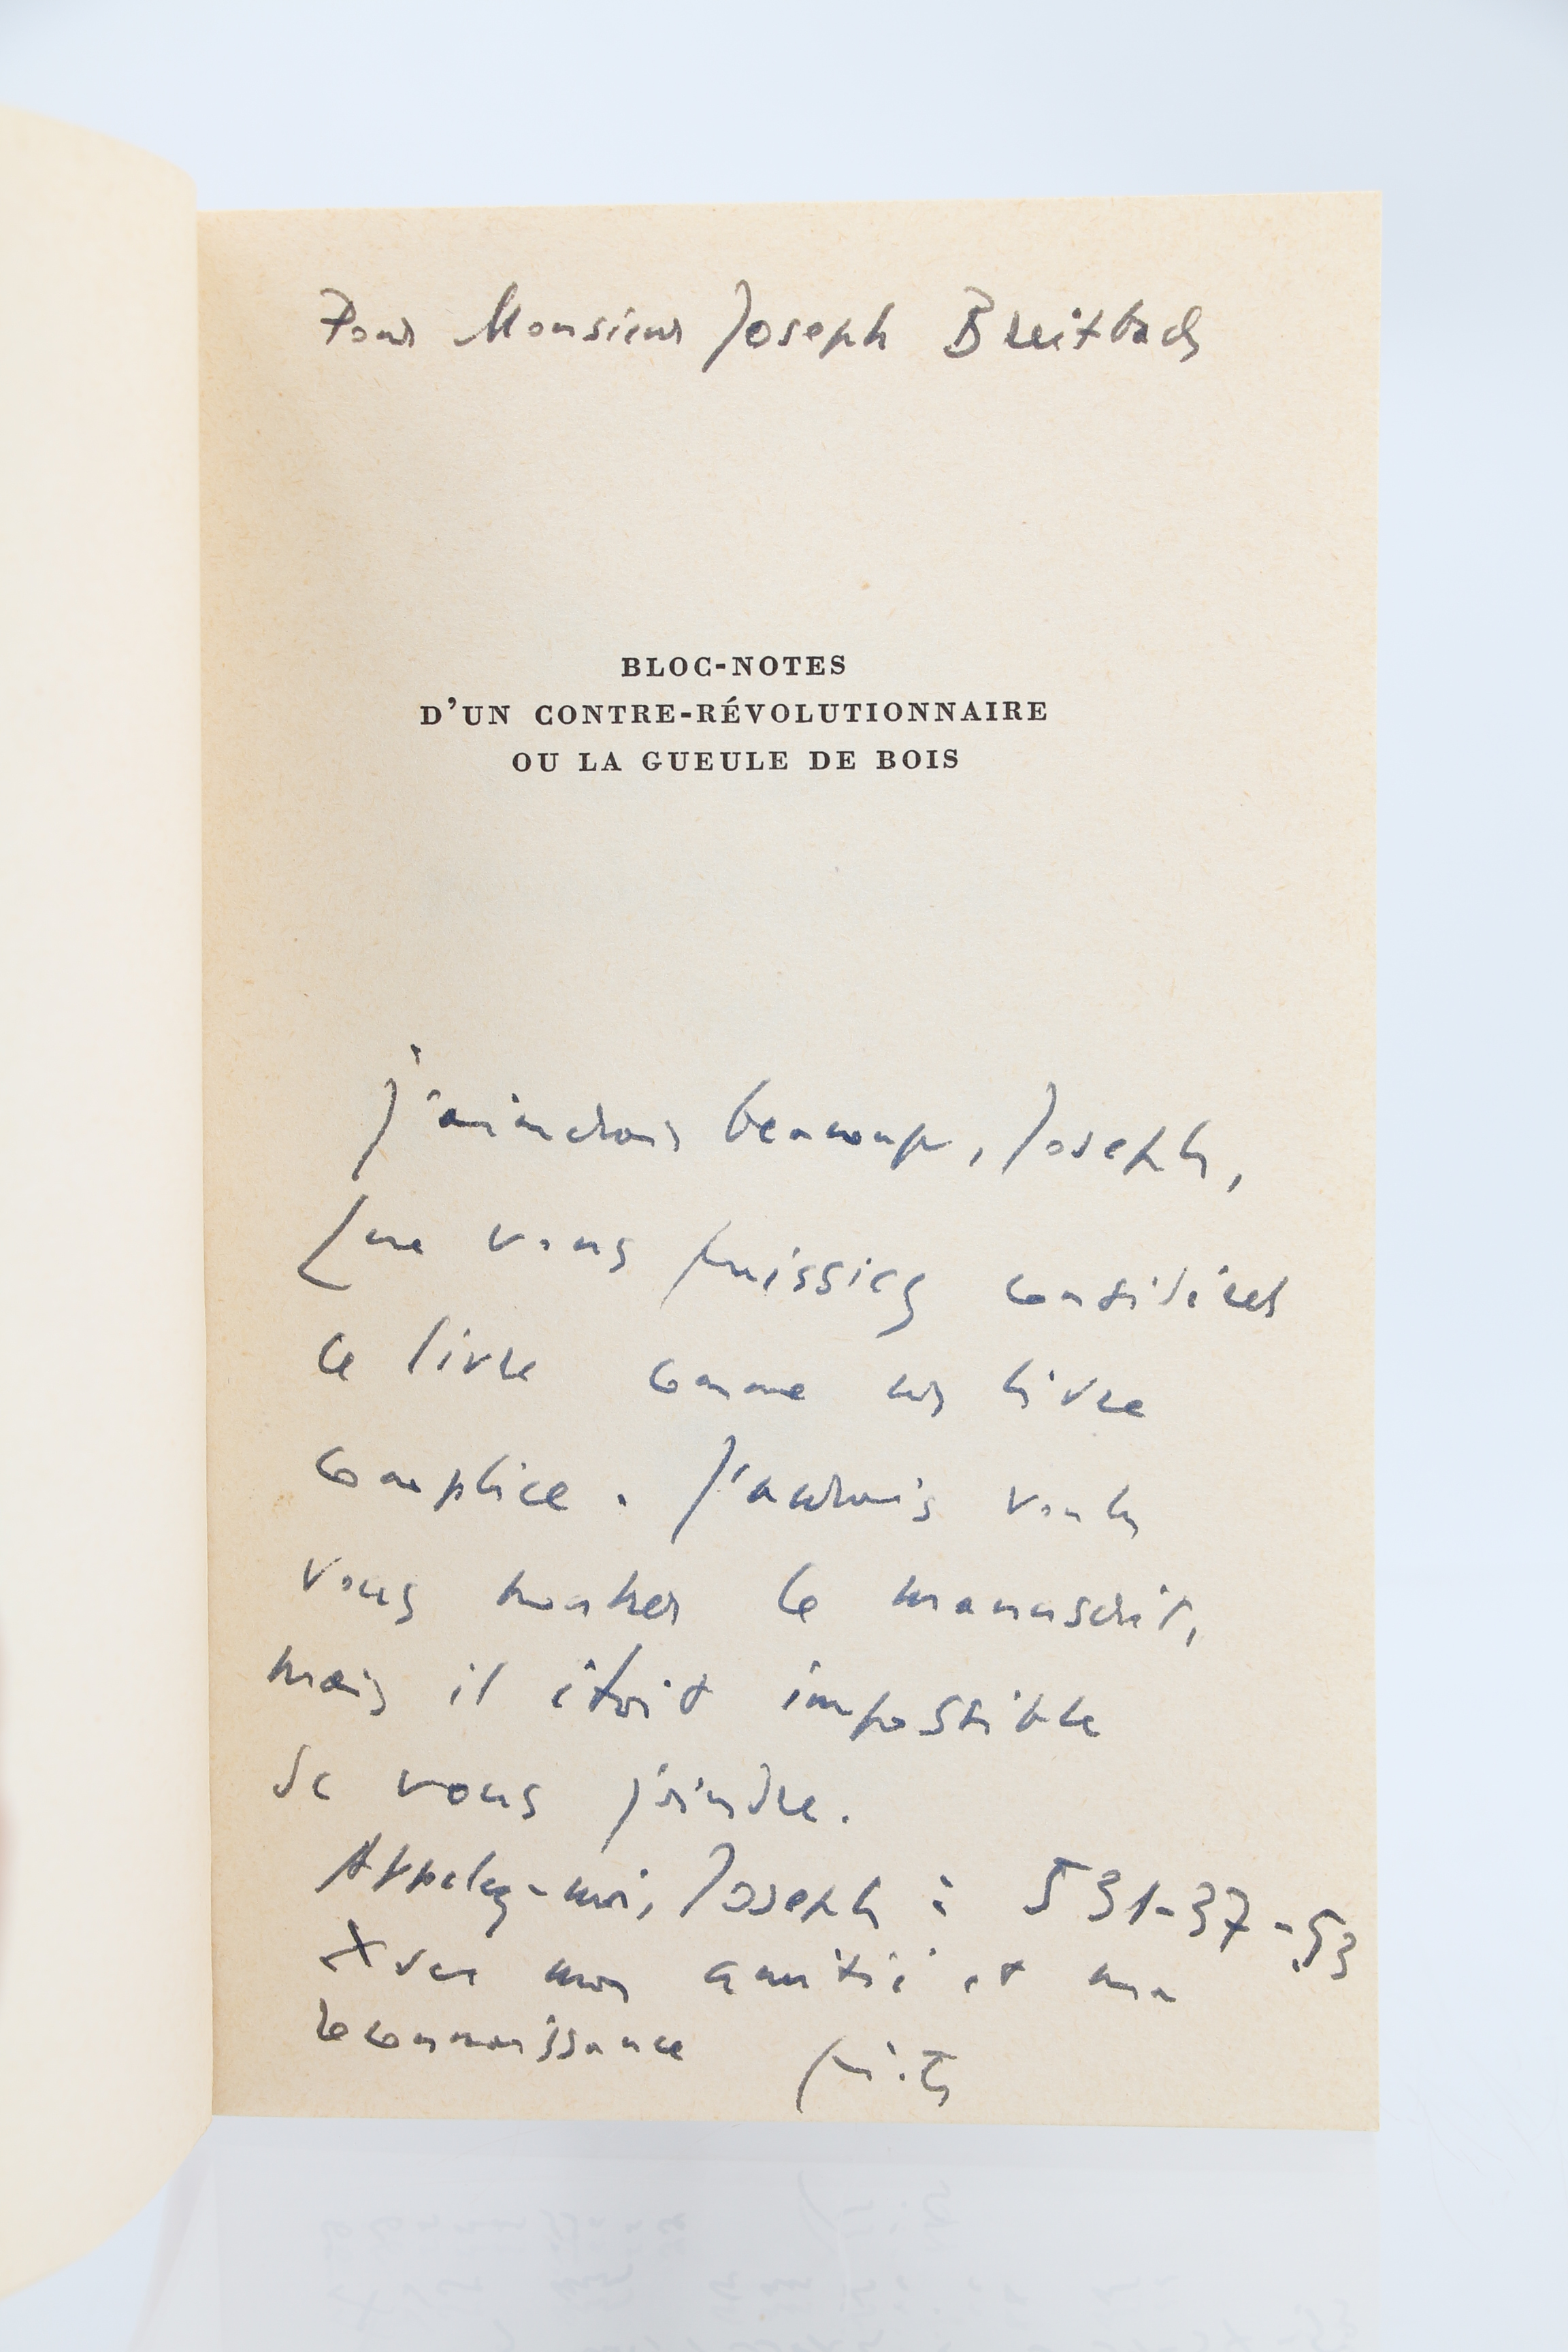 Pour Monsieur Joseph Breitbach
BLOC-NOTES
D'UN CONTRE-RÉVOLUTIONNAIRE
OU LA GUEULE DE BOIS
J'aimerais beaucoup, Joseph,
que vous puissiez considérer
ce livre comme un livre
complice. J'aurais voulu
vous montrer le manuscrit,
mais il était impossible
de vous joindre.
Appelez-moi, Joseph : 531-37-53
Avec mon amitié et ma
reconnaissance